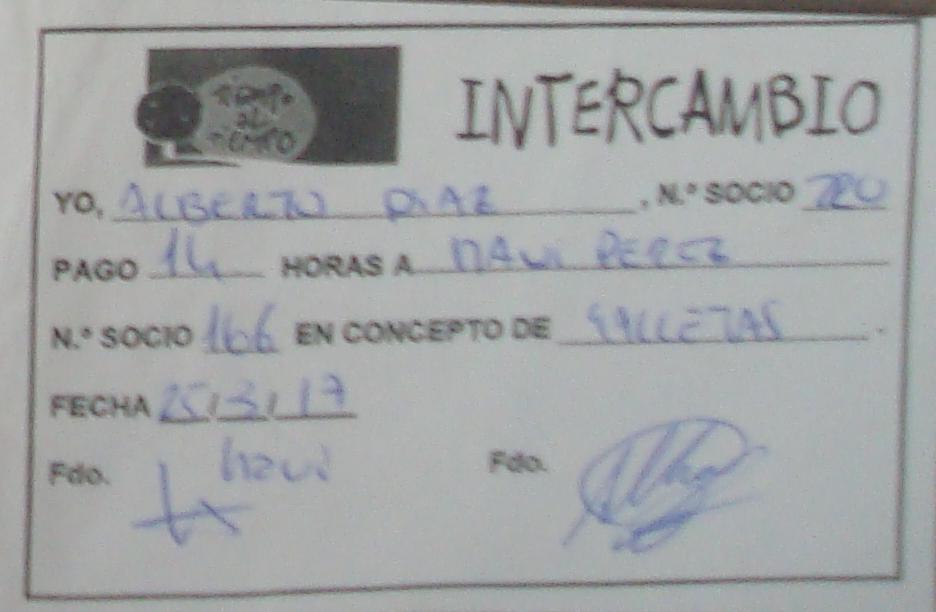 TIEMPO
AL
TIEMPO
INTERCAMBIO
YO, ALBERTO DIAZ, N.º SOCIO 220
PAGO 14 HORAS A MAVI PEREZ
N.º SOCIO 166 EN CONCEPTO DE GALLETAS.
FECHA 25/3/17
Fdo. Mavi Fdo.